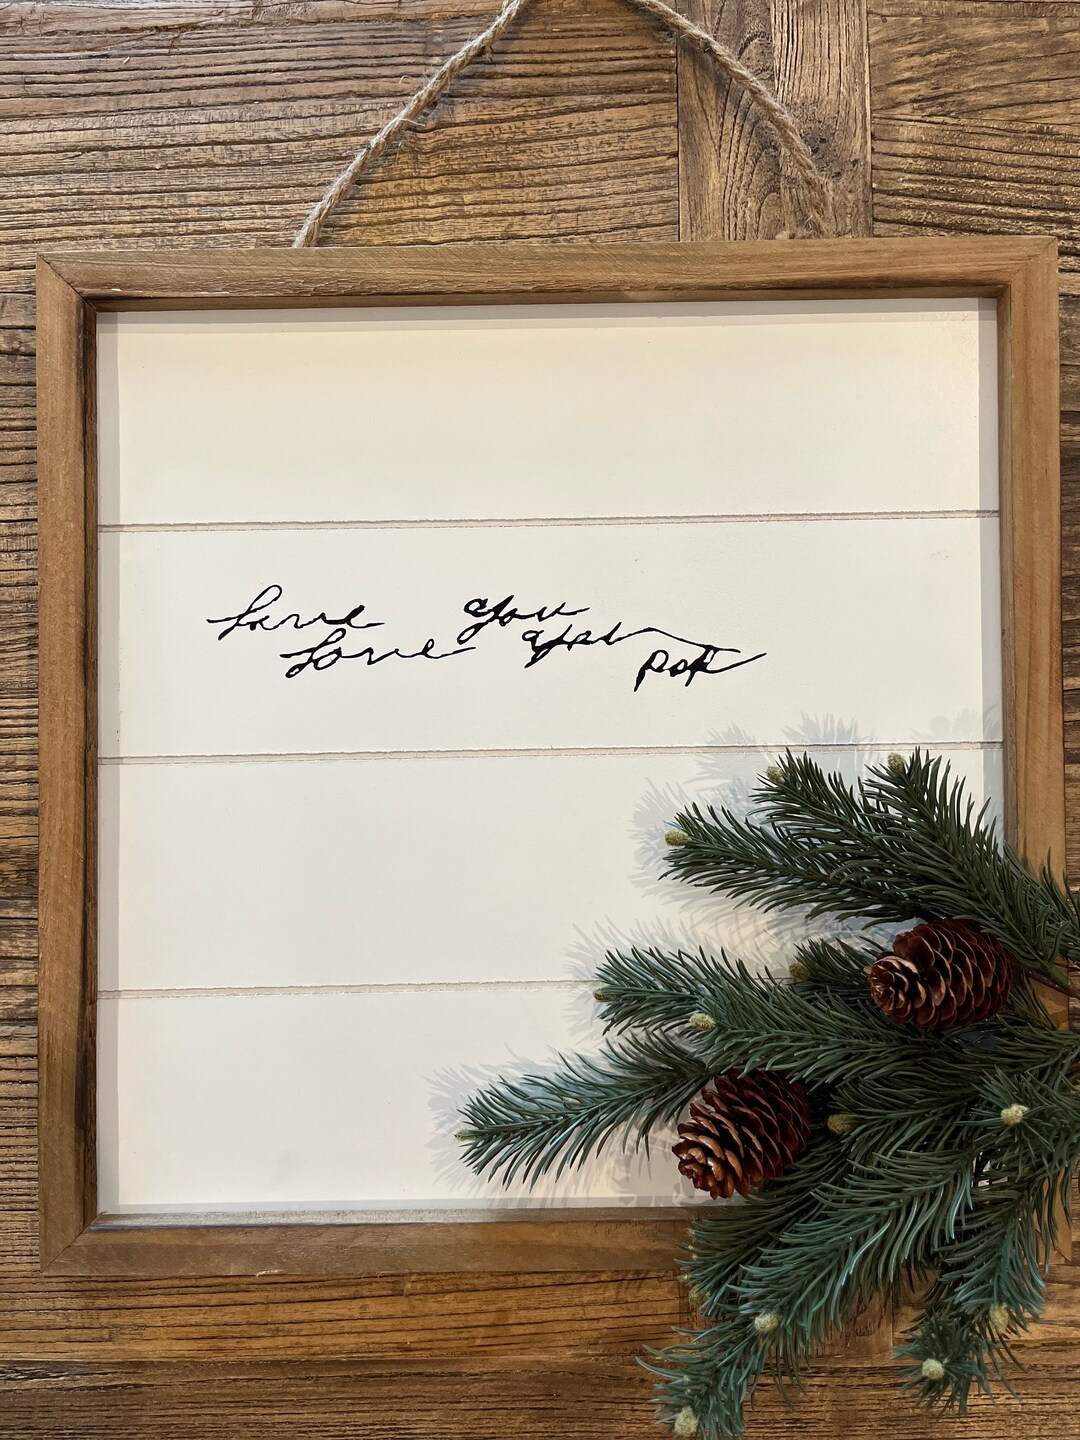 Love you
Love you
Pop